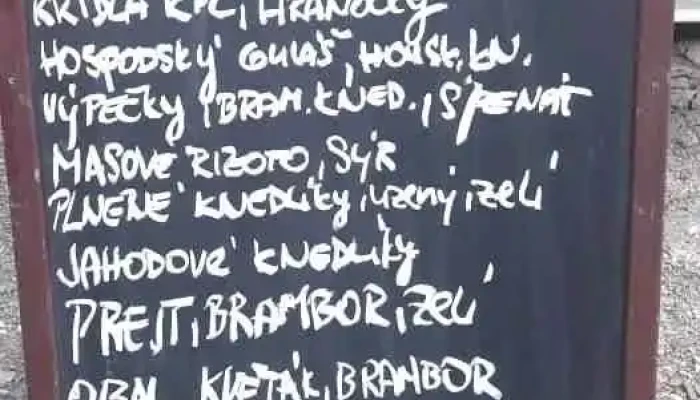 KŘÍDLA KFC, HRANOLKY
HOSPODSKÝ GULÁŠ, HOUSK. KN.
VÝPEČKY, BRAM. KNED., ŠPENÁT
MASOVÉ RIZOTO, SÝR
PLNĚNÉ KNEDLÍKY, UZENÝ, ZELÍ
JAHODOVÉ KNEDLÍKY
PREJT, BRAMBOR, ZELÍ
OBAL. KVĚTÁK, BRAMBOR